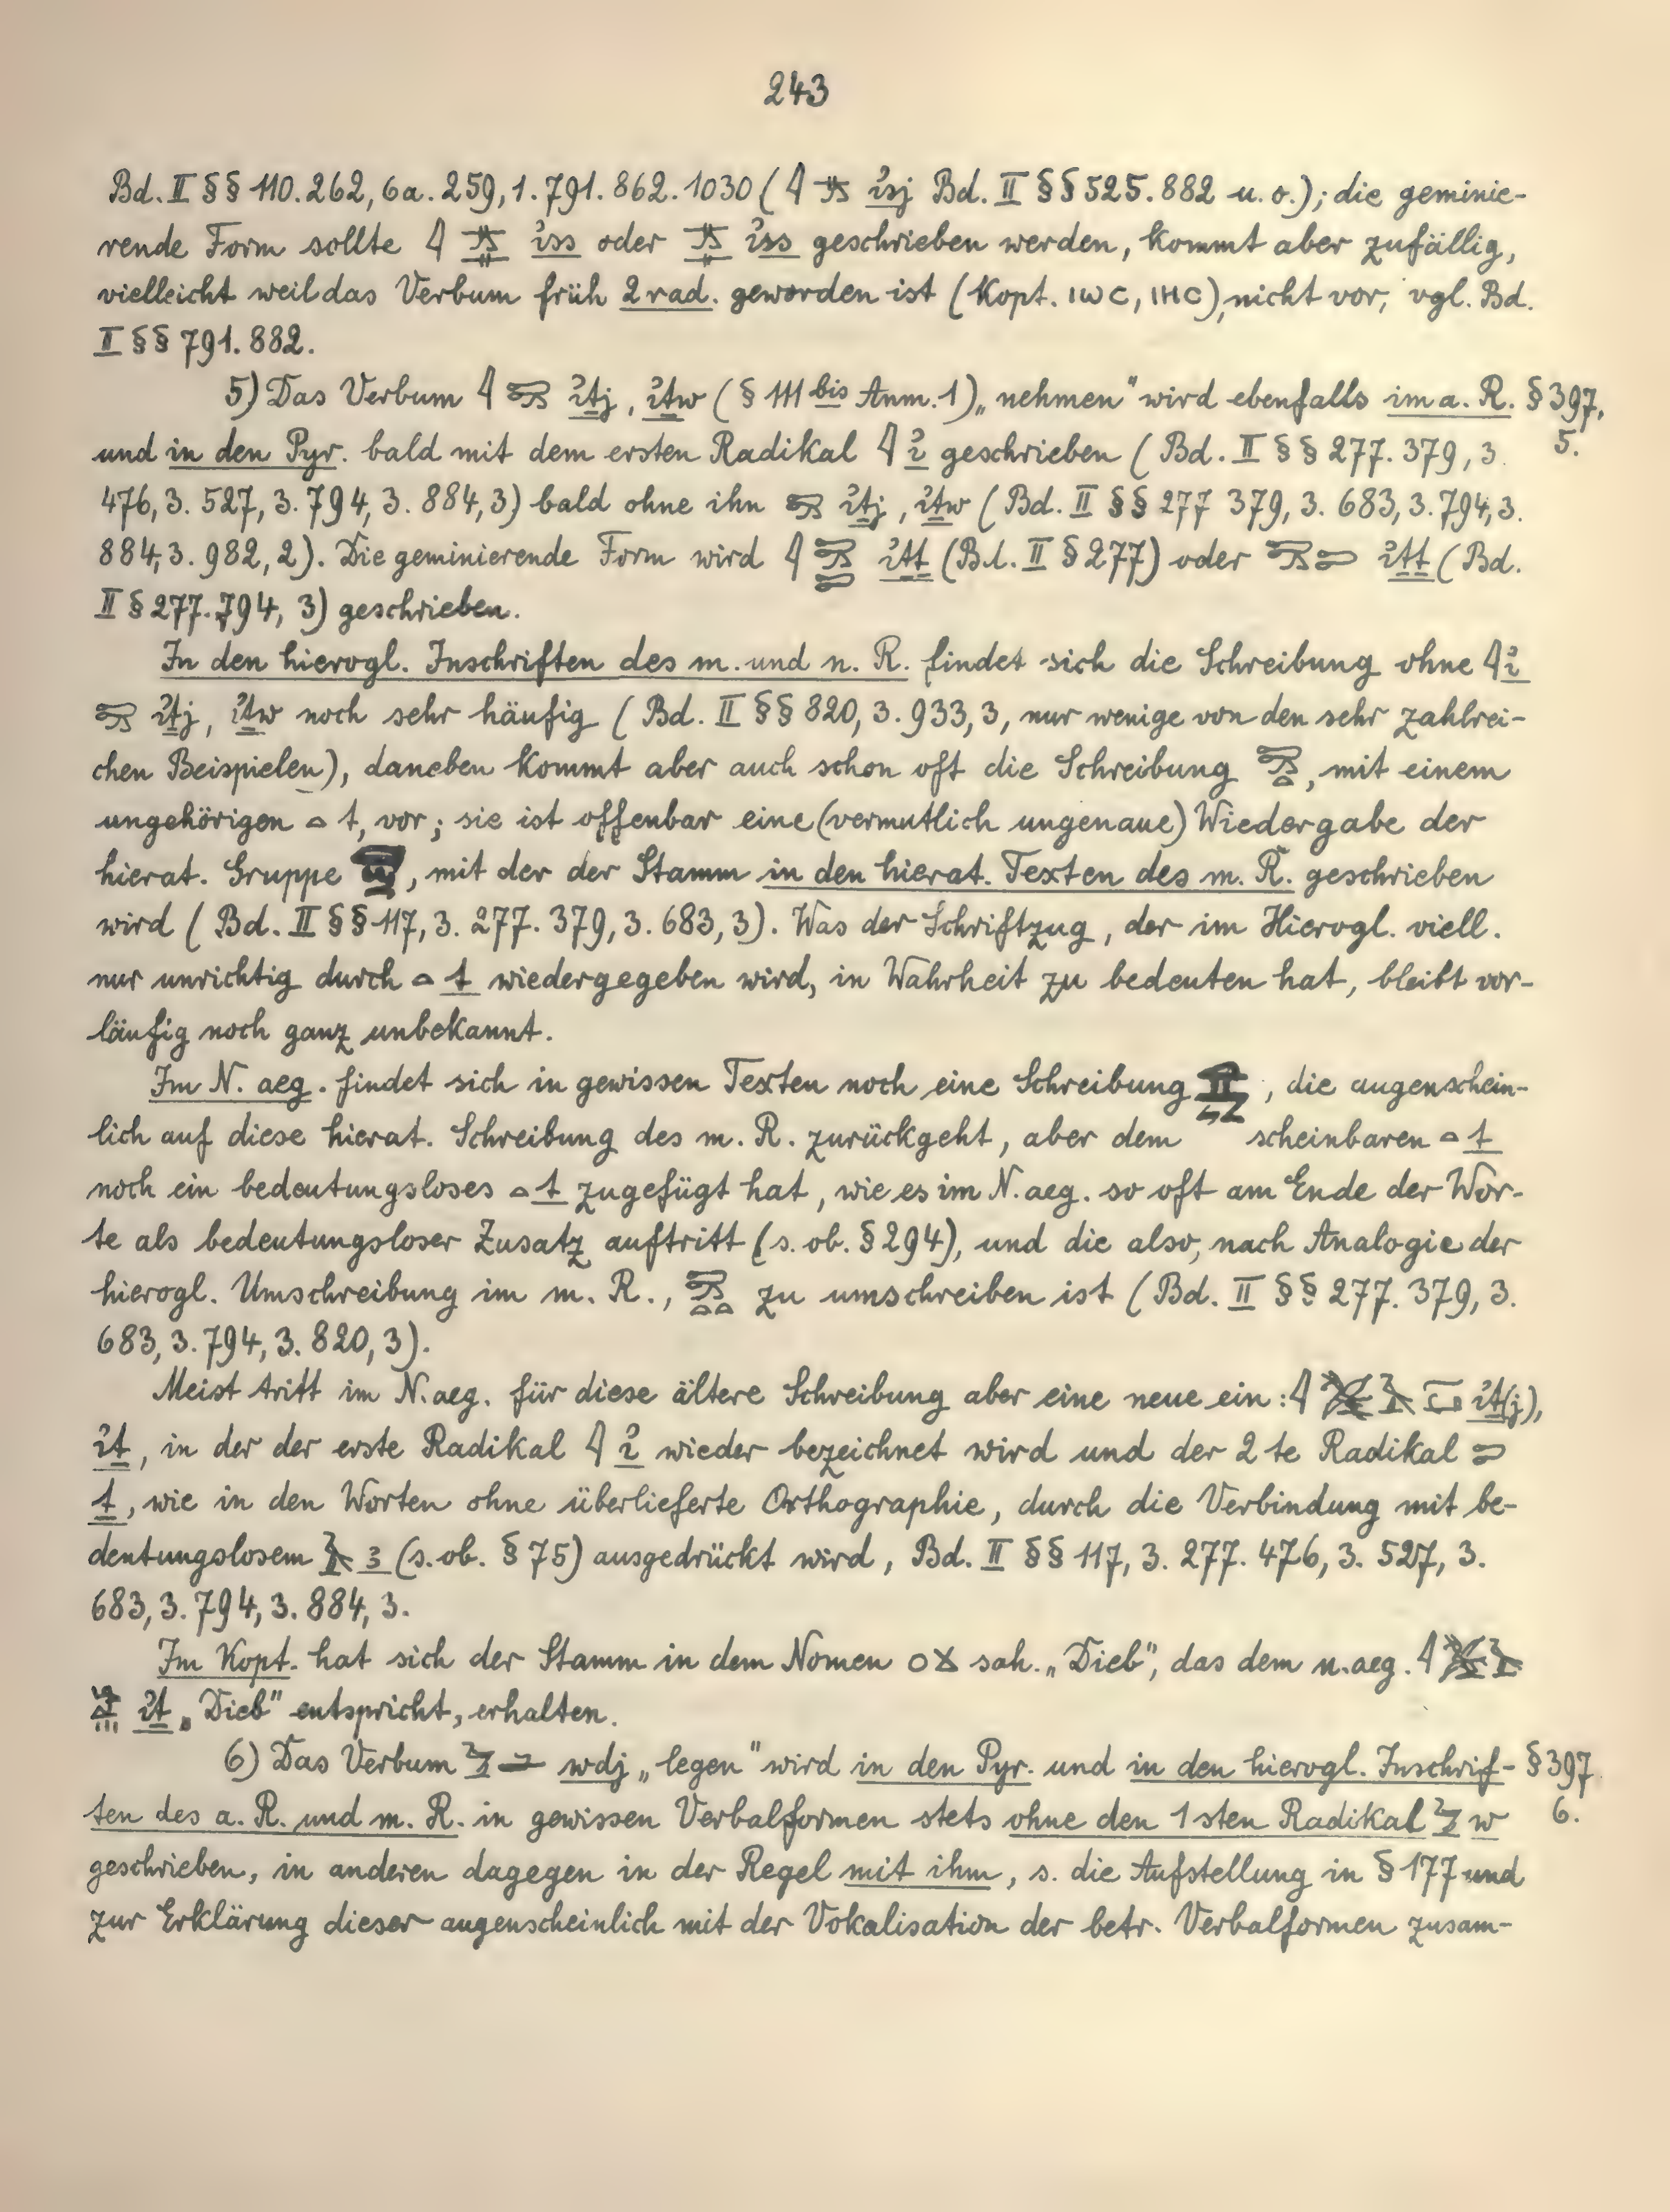 243
Bd. II §§ 110. 262, 6a. 259, 1. 791. 862. 1030 ( 𓇋 ꞽsj Bd. II §§ 525. 882 u. o.); die geminie-
rende Form sollte 𓇋 ꞽss oder ꞽss geschrieben werden, kommt aber zufällig,
vielleicht weil das Verbum früh 2 rad. geworden ist (Kopt. ⲓⲱⲥ, ⲓⲏⲥ), nicht vor, vgl. Bd.
II §§ 791. 882.
5) Das Verbum 𓇋 ꞽṯj, ꞽṯw (§ 111 bis Anm. 1) „nehmen" wird ebenfalls im a. R. § 397,
und in den Pyr. bald mit dem ersten Radikal 𓇋 ꞽ geschrieben (Bd. II §§ 277. 379, 3. 5.
476, 3. 527, 3. 794, 3. 884, 3) bald ohne ihn ꞽṯj, ꞽṯw (Bd. II §§ 277 379, 3. 683, 3. 794, 3.
884, 3. 982, 2). Die geminierende Form wird 𓇋 ꞽṯṯ (Bd. II § 277) oder ꞽṯṯ (Bd.
II § 277. 794, 3) geschrieben.
In den hierogl. Inschriften des m. und n. R. findet sich die Schreibung ohne 𓇋 ꞽ
ꞽṯj, ꞽṯw noch sehr häufig (Bd. II §§ 820, 3. 933, 3, nur wenige von den sehr zahlrei-
chen Beispielen), daneben kommt aber auch schon oft die Schreibung , mit einem
ungehörigen 𓏏 t, vor; sie ist offenbar eine (vermutlich ungenaue) Wiedergabe der
hierat. Gruppe , mit der der Stamm in den hierat. Texten des m. R. geschrieben
wird (Bd. II §§ 117, 3. 277. 379, 3. 683, 3). Was der Schriftzug, der im Hierogl. viell.
nur unrichtig durch 𓏏 t wiedergegeben wird, in Wahrheit zu bedeuten hat, bleibt vor-
läufig noch ganz unbekannt.
Im N. aeg. findet sich in gewissen Texten noch eine Schreibung , die augenschein-
lich auf diese hierat. Schreibung des m. R. zurückgeht, aber dem scheinbaren 𓏏 t
noch ein bedeutungsloses 𓏏 t zugefügt hat, wie es im N. aeg. so oft am Ende der Wor-
te als bedeutungsloser Zusatz auftritt (s. ob. § 294), und die also, nach Analogie der
hierogl. Umschreibung im m. R., zu umschreiben ist (Bd. II §§ 277. 379, 3.
683, 3. 794, 3. 820, 3).
Meist tritt im N. aeg. für diese ältere Schreibung aber eine neue ein: 𓇋 ꞽṯ(j),
ꞽṯ, in der der erste Radikal 𓇋 ꞽ wieder bezeichnet wird und der 2te Radikal 𓍿
ṯ, wie in den Worten ohne überlieferte Orthographie, durch die Verbindung mit be-
deutungslosem 𓄿 ꜣ (s. ob. § 75) ausgedrückt wird, Bd. II §§ 117, 3. 277. 476, 3. 527, 3.
683, 3. 794, 3. 884, 3.
Im Kopt. hat sich der Stamm in dem Nomen ⲟϫ sah. „Dieb", das dem n. aeg. 𓇋
ꞽṯ „Dieb" entspricht, erhalten.
6) Das Verbum wdj „legen" wird in den Pyr. und in den hierogl. Inschrif- § 397.
ten des a. R. und m. R. in gewissen Verbalformen stets ohne den 1sten Radikal 𓅱 w 6.
geschrieben, in anderen dagegen in der Regel mit ihm, s. die Aufstellung in § 177 und
zur Erklärung dieser augenscheinlich mit der Vokalisation der betr. Verbalformen zusam-